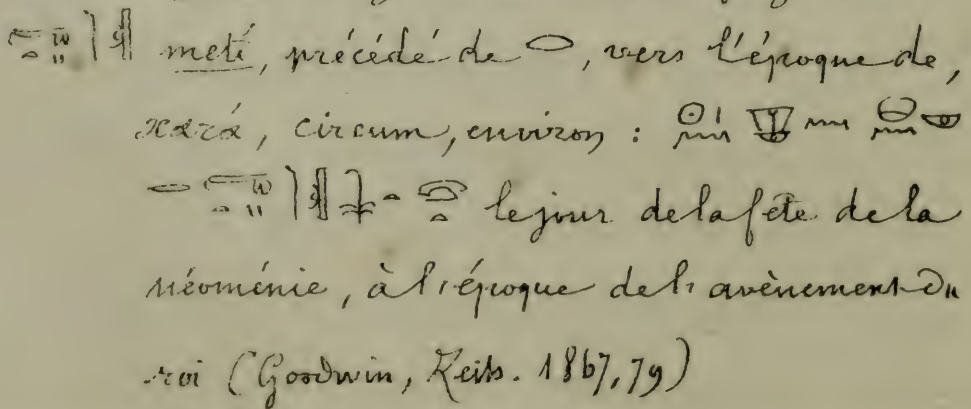 meti, précédé de 𓂋, vers l'époque de,
κατά, circum, environ :
le jour de la fête de la
néoménie, à l'époque de l'avènement du
roi (Goodwin, Zeits. 1867, 79)